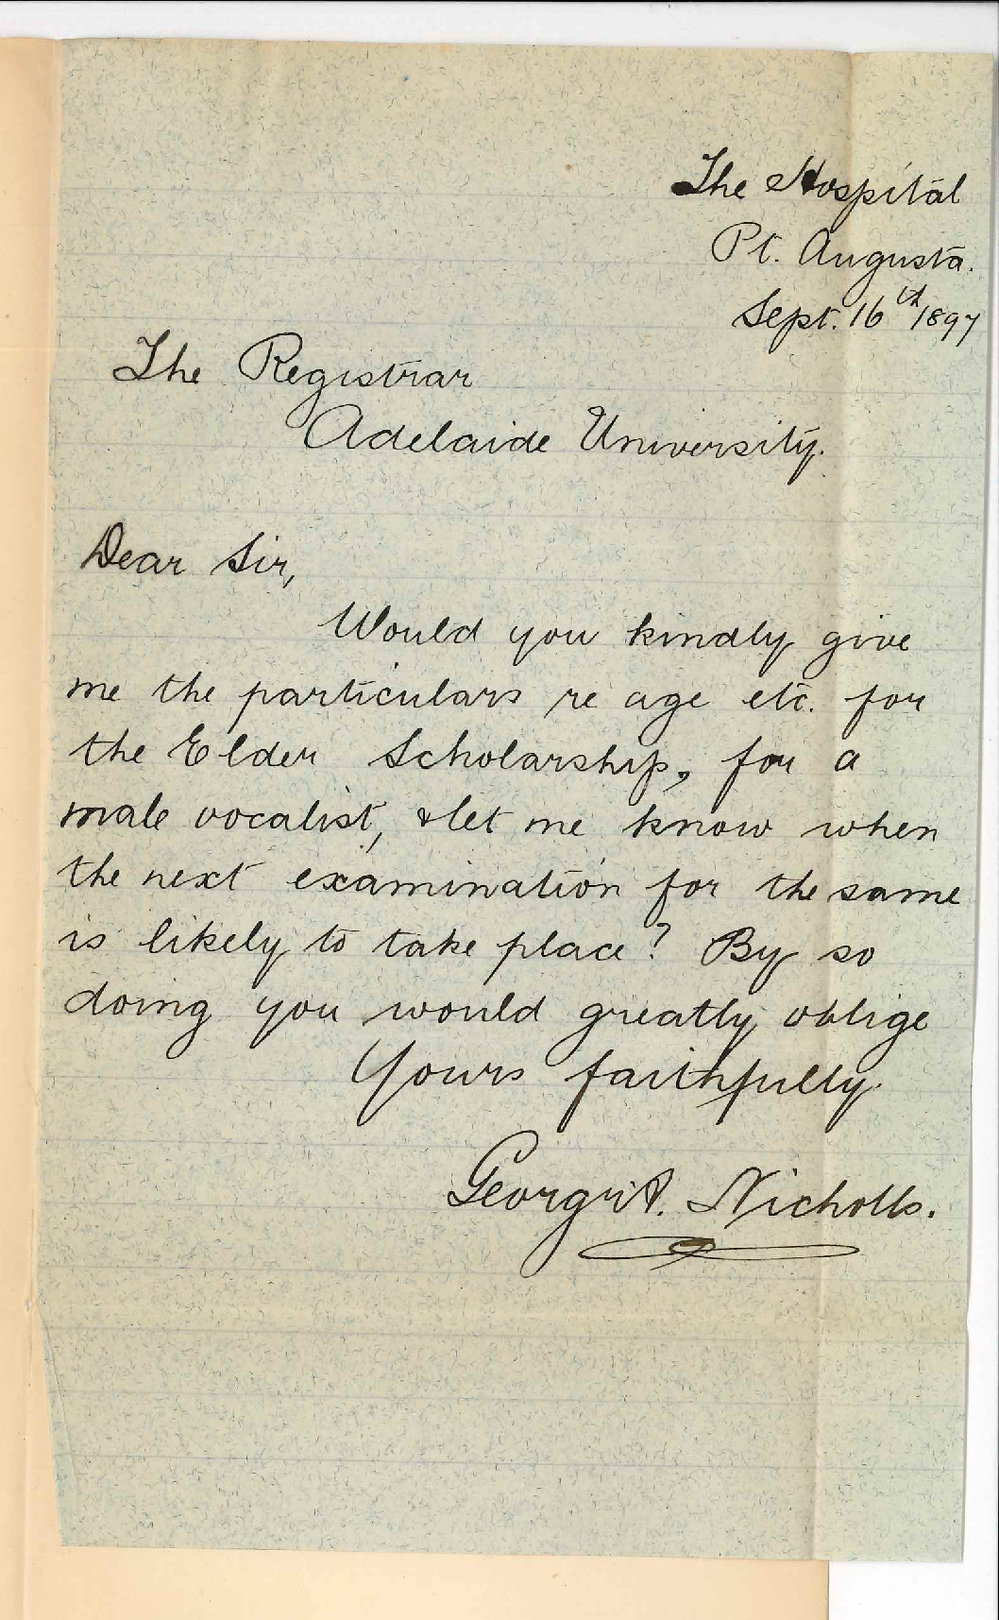 The Hospital
Pt. Augusta.
Sept. 16th 1897
The Registrar
Adelaide University.
Dear Sir,
Would you kindly give
me the particulars re age etc. for
the Elder Scholarship, for a
male vocalist, & let me know when
the next examination for the same
is likely to take place? By so
doing you would greatly oblige
Yours faithfully.
George A. Nicholls.